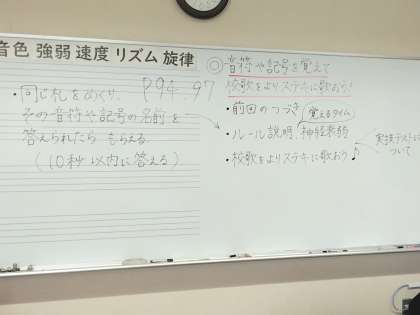 音色 強弱 速度 リズム 旋律
・同じ札をめくり、 P94.97
その音符や記号の名前を
答えられたら もらえる
(10秒以内に答える)
◎音符や記号を覚えて
校歌をよりステキに歌おう!
・前回のつづき 覚えるタイム
・ルール説明、神経衰弱
・校歌をよりステキに歌おう♪
実技テストに
ついて